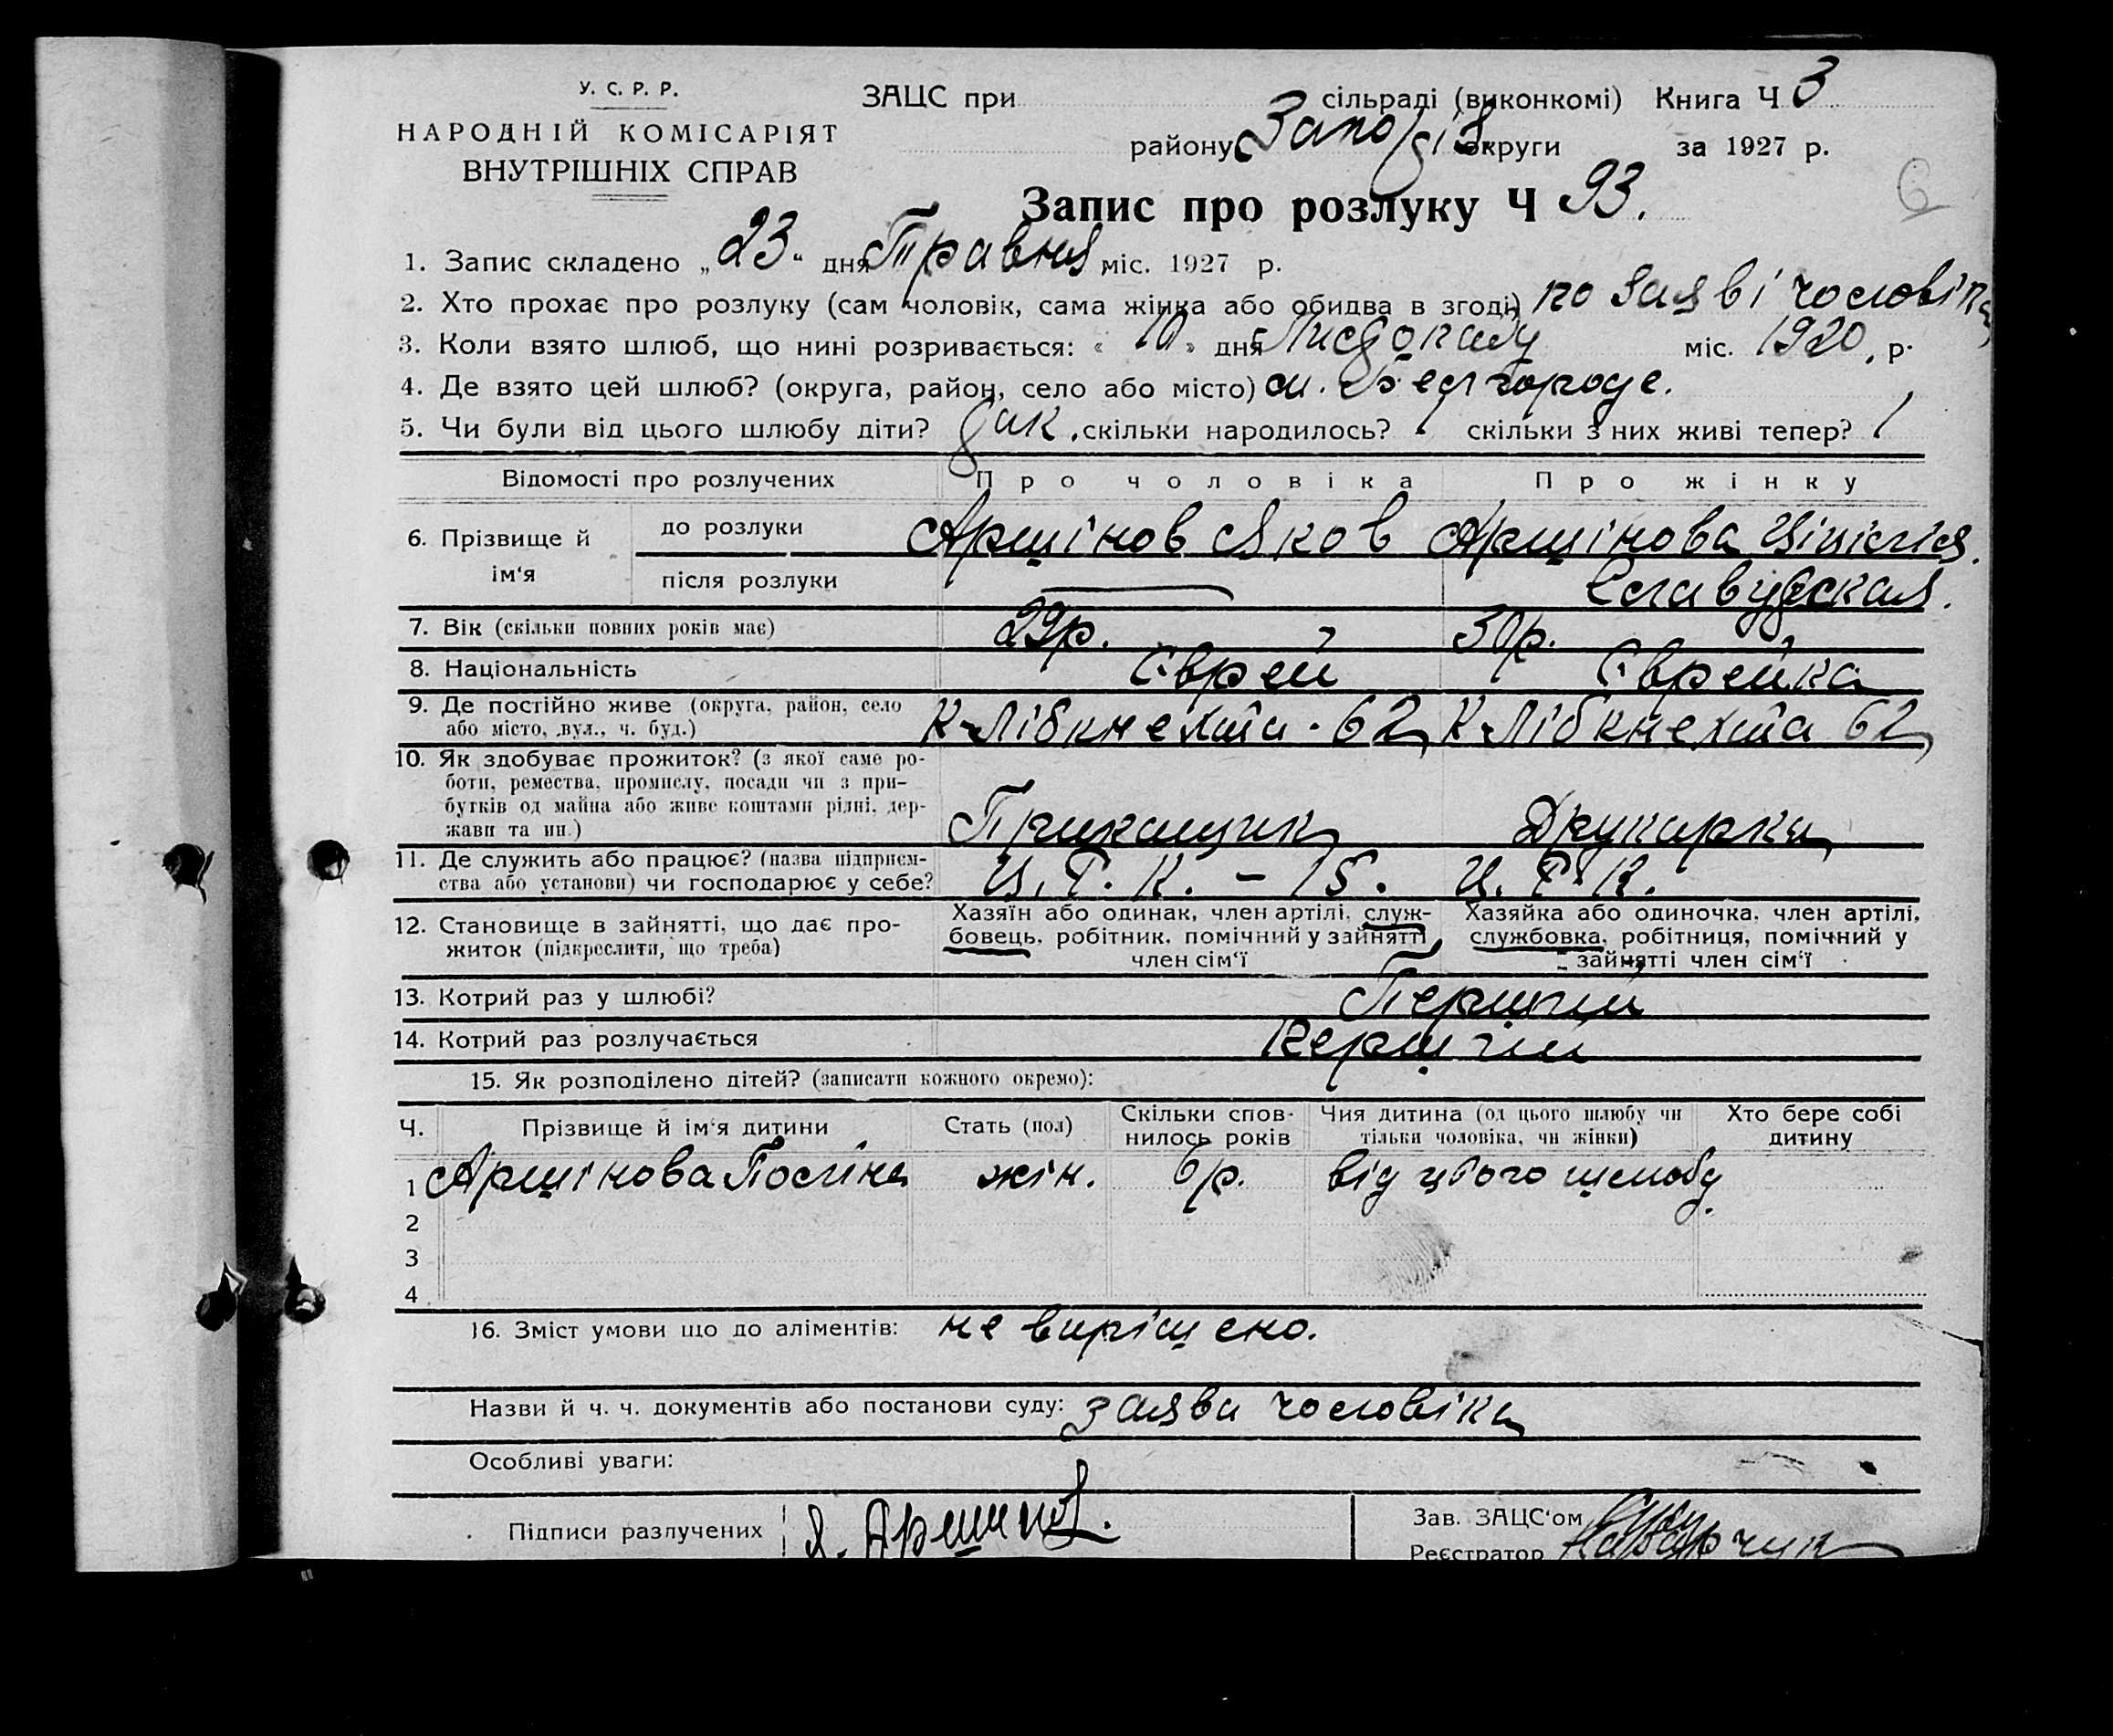 У. С. Р. Р.
НАРОДНІЙ КОМІСАРІЯТ
ВНУТРІШНІХ СПРАВ
ЗАЦС при сільраді (виконкомі) Книга Ч 3
району округи за 1927 р.
6
Запис про розлуку Ч 93.
1. Запис складено „23“ дня Травня міс. 1927 р.
2. Хто прохає про розлуку (сам чоловік, сама жінка або обидва в згоді) по заяві чоловіка
3. Коли взято шлюб, що нині розривається: « 10 » дня Листопаду міс. 1920 р.
4. Де взято цей шлюб? (округа, район, село або місто) м. Белгороде.
5. Чи були від цього шлюбу діти? так, скільки народилось? 1 скільки з них живі тепер? 1
Відомості про розлучених Про чоловіка Про жінку
6. Прізвище й ім‘я до розлуки Аршінов Яков Аршінова
після розлуки — Славутская.
7. Вік (скільки повних років має) 29 р. 30 р.
8. Національність Єврей Єврейка
9. Де постійно живе (округа, район, село або місто, вул., ч. буд.) К-Лібкнехта - 62 К-Лібкнехта 62
10. Як здобуває прожиток? (з якої саме ро-
боти, ремества, промислу, посади чи з при-
бутків од майна або живе коштами рідні, дер-
жави та ин.) Прикащик Друкарка
11. Де служить або працює? (назва підприєм-
ства або установи) чи господарює у себе? Ц. Р. К. – 15. Ц. Р. К.
12. Становище в зайнятті, що дає про-
житок (підкреслити, що треба)
Хазяїн або одинак, член артілі, служ-
бовець, робітник, помічний у зайнятті
член сім‘ї
Хазяйка або одиночка, член артілі,
службовка, робітниця, помічний у
зайнятті член сім‘ї
13. Котрий раз у шлюбі? Перший
14. Котрий раз розлучається Перший
15. Як розподілено дітей? (записати кожного окремо):
Ч. Прізвище й ім‘я дитини Стать (пол) Скільки спов-
нилось років Чия дитина (од цього шлюбу чи
тільки чоловіка, чи жінки) Хто бере собі
дитину
1 Аршінова Поліна жін. 6 р. від цього шлюбу.
2
3
4
16. Зміст умови що до аліментів: не вирішено.
Назви й ч. ч. документів або постанови суду: заява чоловіка
Особливі уваги:
Підписи разлучених Я. Аршинов.
Зав. ЗАЦС‘ом
Реєстратор